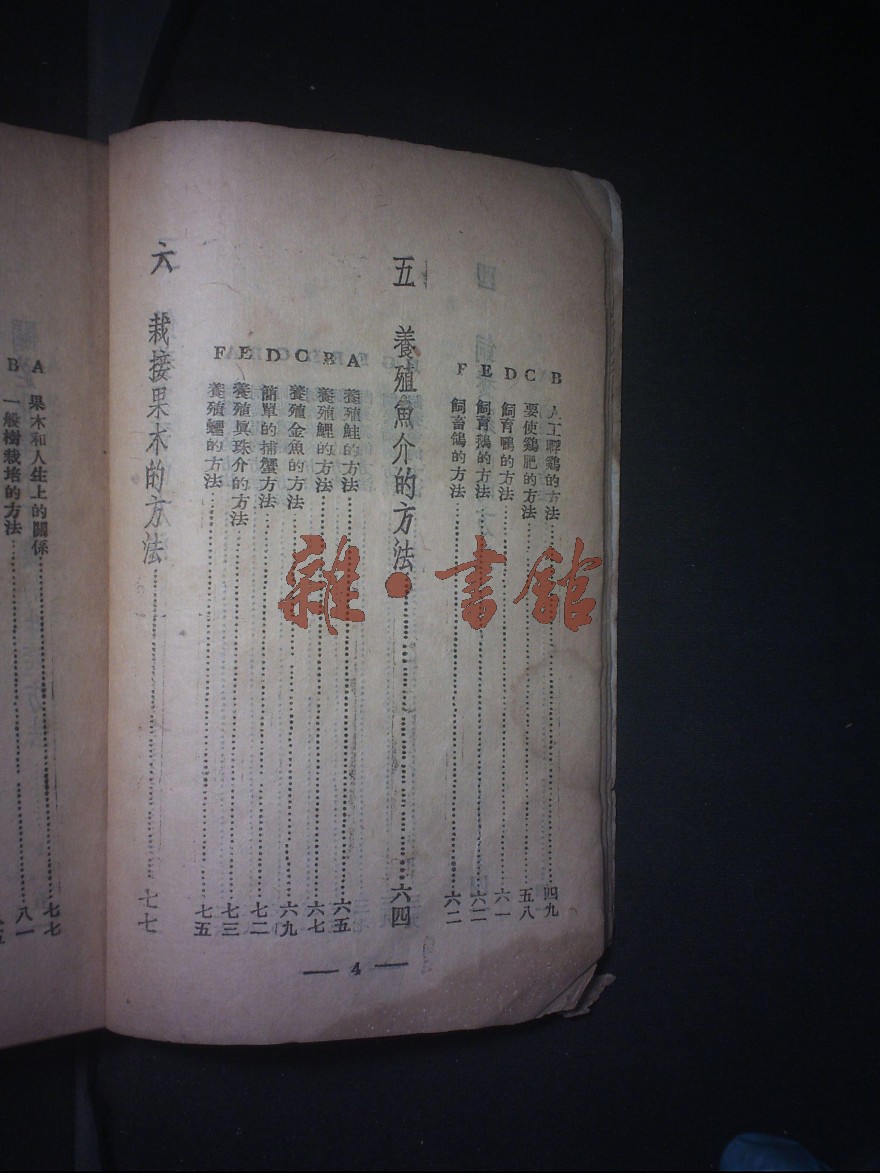 B 人工孵鷄的方法 四九
C 要使鷄肥的方法 五八
D 飼育鴨的方法 六一
E 飼育鵝的方法 六二
F 飼畜鴿的方法 六二
五 養殖魚介的方法 六四
A 養殖鮭的方法 六五
B 養殖鯉的方法 六七
C 養殖金魚的方法 六九
D 簡單的捕蟹方法 七二
E 養殖眞珠介的方法 七三
F 養殖蟶的方法 七五
六 栽接果木的方法 七七
— 4 —
A 果木和人生上的關係 七七
B 一般樹栽培的方法 八一
雜·書館